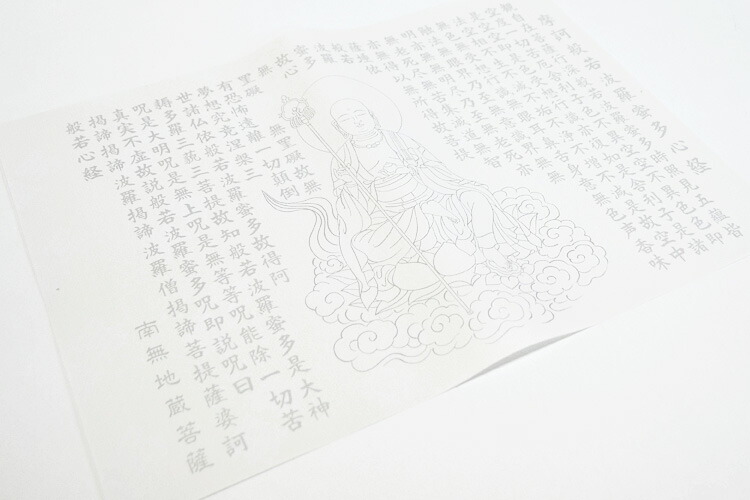 摩訶般若波羅蜜多心経
観自在菩薩行深般若波羅蜜多時照見五蘊皆
空度一切苦厄舎利子色不異空空不異色色即
是空空即是色受想行識亦復如是舎利子是諸
法空相不生不滅不垢不浄不増不減是故空中
無色無受想行識無眼耳鼻舌身意無色声香味
触法無眼界乃至無意識界無無
明亦無無明尽乃至無老死亦
無老死尽無苦集滅道無智
亦無得以無所得故菩提
薩埵依
般若
波羅
蜜多
故心
無
罣礙無罣礙故無
有恐怖遠離一切顛倒
夢想究竟涅槃三
世諸仏依般若波羅蜜多故得阿
耨多羅三藐三菩提故知般若波羅蜜多是大神
呪是大明呪是無上呪是無等等呪能除一切苦
真実不虚故説般若波羅蜜多呪即説呪曰
羯諦羯諦波羅羯諦波羅僧羯諦菩提薩婆訶
般若心経
南無地蔵菩薩